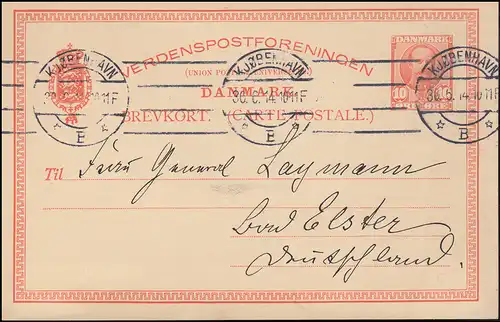 VERDENSPOSTFORENINGEN
(UNION POSTALE UNIVERSELLE)
DANMARK
BREVKORT. (CARTE POSTALE.)
DANMARK
10 ØRE
KJØBENHAVN
30.6.14.10-11F
B
KJØBENHAVN
30.6.14.10-11F
B
KJØBENHAVN
30.6.14.10-11F
B
Til Frau General Laymann
Bad Elster
Deutschland.